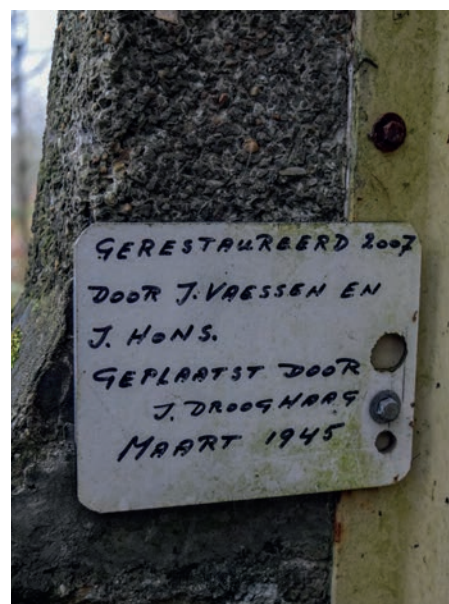 GERESTAUREERD 2007
DOOR J. VAESSEN EN
J. HONS.
GEPLAATST DOOR
J. DROOGHAAG
MAART 1945